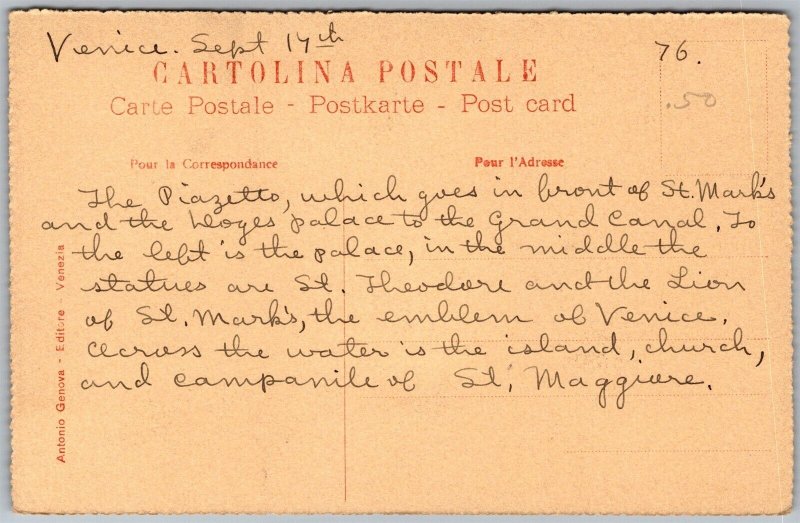 Venice. Sept 14th
76.
CARTOLINA POSTALE
Carte Postale - Postkarte - Post card
.50
Pour la Correspondance
Pour l'Adresse
The Piazetto, which goes in front of St. Mark's
and the Doges palace to the Grand Canal. To
the left is the palace, in the middle the
statues are St. Theodore and the Lion
of St. Mark's, the emblem of Venice.
Across the water is the island, church,
and campanile of St. Maggiore.
Antonio Genova - Editore - Venezia